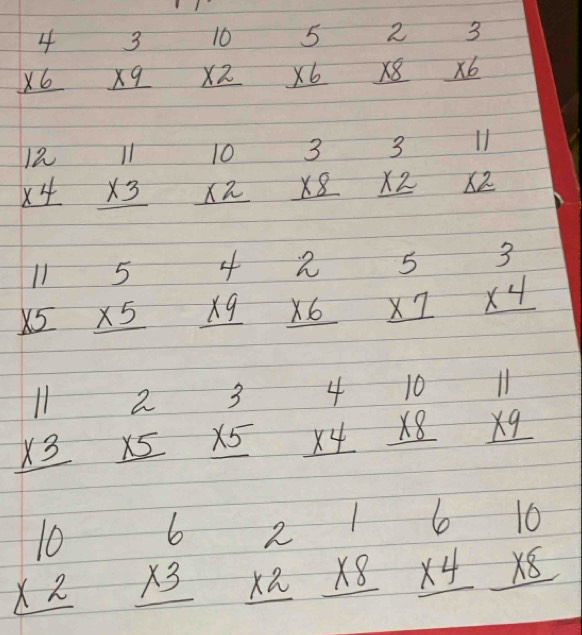 4 3 10 5 2 3
x6 x9 x2 x6 x8 x6
12 11 10 3 3 11
x4 x3 x2 x8 x2 x2
11 5 4 2 5 3
x5 x5 x9 x6 x7 x4
11 2 3 4 10 11
x3 x5 x5 x4 x8 x9
10 6 2 1 6 10
x2 x3 x2 x8 x4 x8